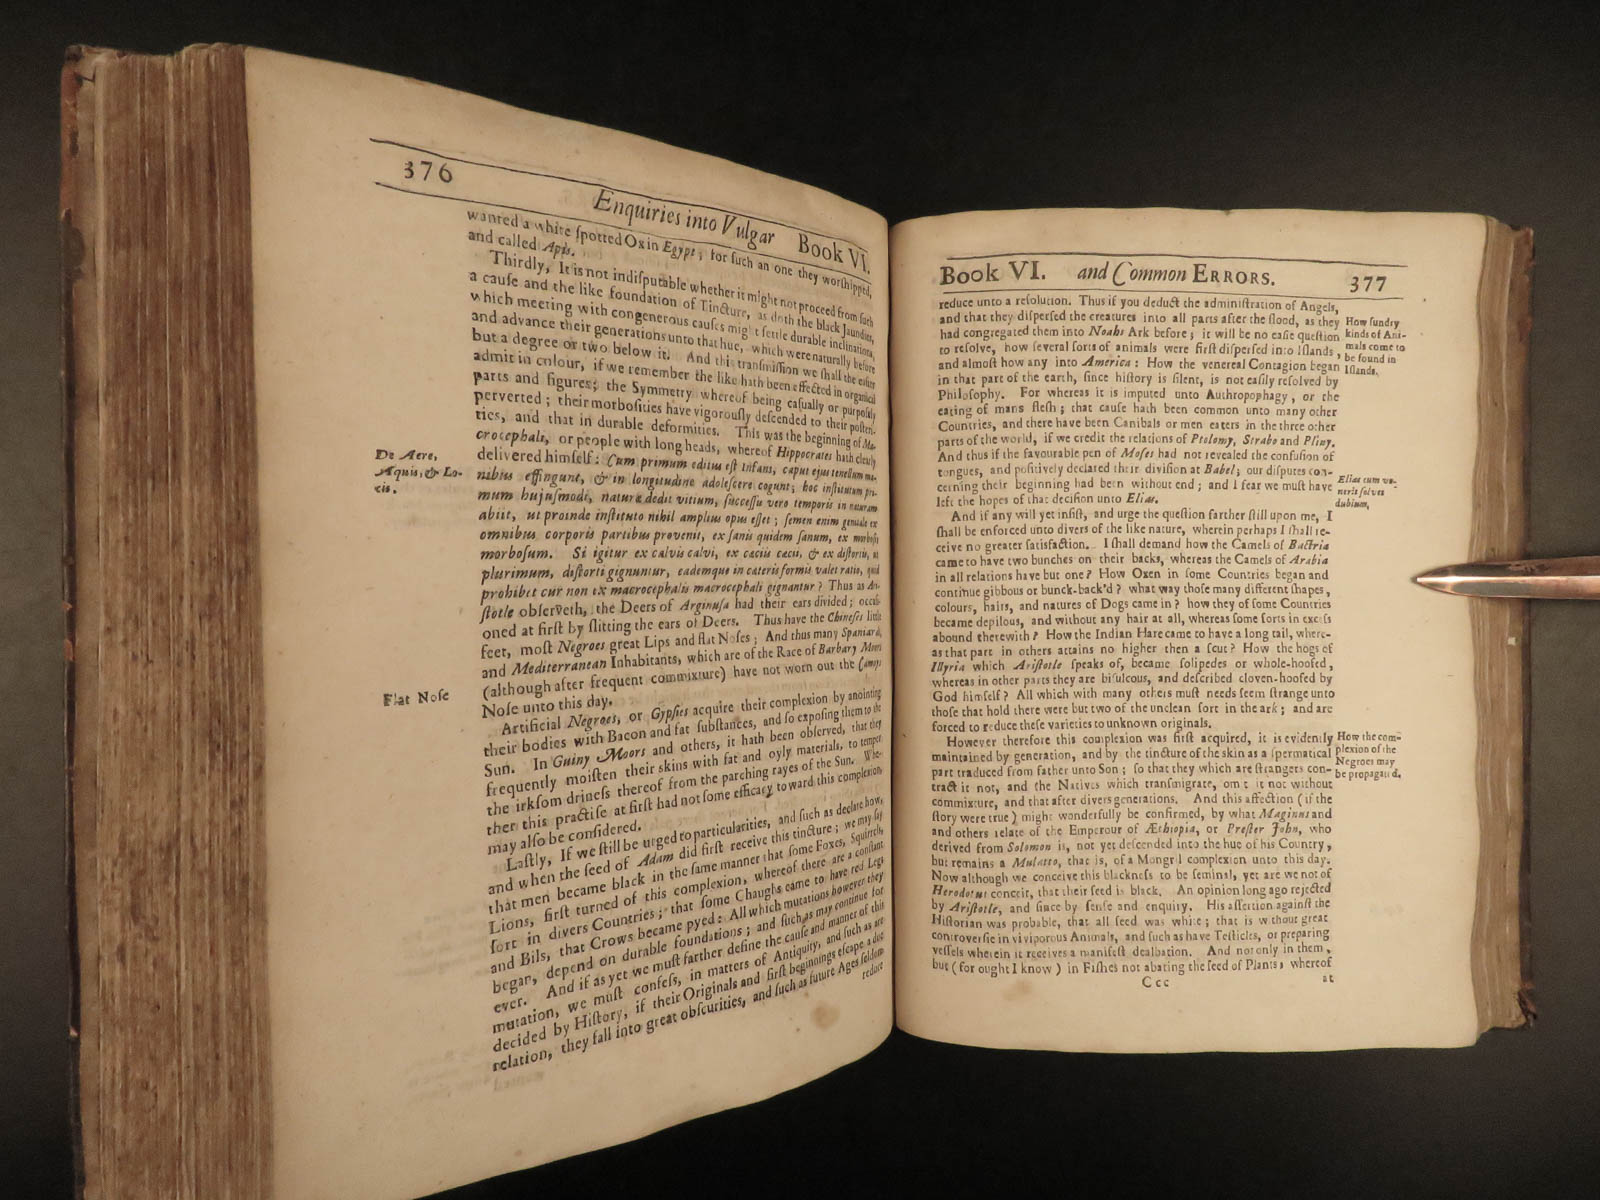 376
Enquiries into Vulgar Book VI.
wanted a white ſpotted Ox in Egypt, for ſuch an one they worſhipped,
and called Apis.
Thirdly, It is not indiſputable whether it might not proceed from ſuch
a cauſe and the like foundation of Tincture, as doth the black Jaundies,
which meeting with congenerous cauſes might ſettle durable inclinations,
and advance their generations unto that hue, which were naturally before
but a degree or two below it. And this tranſmiſſion we ſhall the eaſier
admit in colour, if we remember the like hath been effected in organical
parts and figures; the Symmetry whereof being caſually or purpoſely
perverted; their morboſities have vigorouſly deſcended to their poſteri-
ties, and that in durable deformities. This was the beginning of Ma-
crocephali, or people with long heads, whereof Hippocrates hath clearly
delivered himſelf: Cum primum editus eſt Infans, caput ejus tenellum ma-
De Aere,
Aquis, & Lo-
cis.
nibus effingunt, & in longitudine adoleſcere cogunt; hoc inſtitutum pri-
mum hujuſmodi, naturæ dedit vitium, ſucceſſu vero temporis in naturam
abiit, ut proinde inſtituto nihil amplius opus eſſet; ſemen enim genitale ex
omnibus corporis partibus provenit, ex ſanis quidem ſanum, ex morboſis
morboſum. Si igitur ex calvis calvi, ex cæciis cæcii, & ex diſtortis, ut
plurimum, diſtorti gignuntur, eademque in cæteris formis valet ratio, quid
prohibet cur non ex macrocephalis macrocephali gignantur? Thus as Ari-
ſtotle obſerveth, the Deers of Arginuſa had their ears divided; occaſi-
oned at firſt by ſlitting the ears of Deers. Thus have the Chineſes little
feet, moſt Negroes great Lips and flat Noſes; And thus many Spaniards,
and Mediterranean Inhabitants, which are of the Race of Barbary Moors
Flat Noſe
(although after frequent commixture) have not worn out the Camoys
Noſe unto this day.
Artificial Negroes, or Gypſies acquire their complexion by anointing
their bodies with Bacon and fat ſubſtances, and ſo expoſing them to the
Sun. In Guiny Moors and others, it hath been obſerved, that they
frequently moiſten their skins with fat and oyly materials, to temper
the irkſom drineſs thereof from the parching rayes of the Sun. Whe-
ther this practiſe at firſt had not ſome efficacy toward this complexion,
may alſo be conſidered.
Laſtly, If we ſtill be urged to particularities, and ſuch as declare how,
and when the ſeed of Adam did firſt receive this tincture; we may ſay
that men became black in the ſame manner that ſome Foxes, Squirrels,
Lions, firſt turned of this complexion, whereof there are a conſtant
ſort in divers Countries; that ſome Chaughs came to have red Legs
and Bils, that Crows became pyed: All which mutations however they
began, depend on durable foundations; and ſuch as may continue for
ever. And if as yet we muſt farther define the cauſe and manner of this
mutation, we muſt confeſs, in matters of Antiquity, and ſuch as are
decided by Hiſtory, if their Originals and firſt beginnings eſcape a due
relation, they fall into great obſcurities, and ſuch as future Ages ſeldom
reduce
Book VI. and Common ERRORS. 377
reduce unto a reſolution. Thus if you deduct the adminiſtration of Angels,
and that they diſperſed the creatures into all parts after the flood, as they
had congregated them into Noahs Ark before; it will be no eaſie queſtion
to reſolve, how ſeveral ſorts of animals were firſt diſperſed into Iſlands,
and almoſt how any into America: How the venereal Contagion began
How ſundry
kinds of Ani-
mals come to
be found in
Iſlands.
in that part of the earth, ſince hiſtory is ſilent, is not eaſily reſolved by
Philoſophy. For whereas it is imputed unto Anthropophagy, or the
eating of mans fleſh; that cauſe hath been common unto many other
Countries, and there have been Canibals or men eaters in the three other
parts of the world, if we credit the relations of Ptolomy, Strabo and Pliny.
And thus if the favourable pen of Moſes had not revealed the confuſion of
tongues, and poſitively declared their diviſion at Babel; our diſputes con-
cerning their beginning had been without end; and I fear we muſt have
left the hopes of that deciſion unto Elias.
Elias cum ve-
nerit ſolves
dubium,
And if any will yet inſiſt, and urge the queſtion farther ſtill upon me, I
ſhall be enforced unto divers of the like nature, wherein perhaps I ſhall re-
ceive no greater ſatisfaction. I ſhall demand how the Camels of Bactria
came to have two bunches on their backs, whereas the Camels of Arabia
in all relations have but one? How Oxen in ſome Countries began and
continue gibbous or bunck-back'd? what way thoſe many different ſhapes,
colours, hairs, and natures of Dogs came in? how they of ſome Countries
became depilous, and without any hair at all, whereas ſome ſorts in exceſs
abound therewith? How the Indian Hare came to have a long tail, where-
as that part in others attains no higher then a ſcut? How the hogs of
Illyria which Ariſtotle ſpeaks of, became ſolipedes or whole-hoofed,
whereas in other parts they are biſulcous, and deſcribed cloven-hoofed by
God himſelf? All which with many others muſt needs ſeem ſtrange unto
thoſe that hold there were but two of the unclean ſort in the ark; and are
forced to reduce theſe varieties to unknown originals.
However therefore this complexion was firſt acquired, it is evidently
maintained by generation, and by the tincture of the skin as a ſpermatical
part traduced from father unto Son; ſo that they which are ſtrangers con-
How the com-
plexion of the
Negroes may
be propagated.
tract it not, and the Natives which tranſmigrate, omit it not without
commixture, and that after divers generations. And this affection (if the
ſtory were true) might wonderfully be confirmed, by what Maginus and
and others relate of the Emperour of Æthiopia, or Preſter John, who
derived from Solomon is, not yet deſcended into the hue of his Country,
but remains a Mulatto, that is, of a Mongril complexion unto this day.
Now although we conceive this blackneſs to be ſeminal, yet are we not of
Herodotus conceit, that their ſeed is black. An opinion long ago rejected
by Ariſtotle, and ſince by ſenſe and enquiry. His aſſertion againſt the
Hiſtorian was probable, that all ſeed was white; that is without great
controverſie in viviporous Animals, and ſuch as have Teſticles, or preparing
veſſels wherein it receives a manifeſt dealbation. And not only in them,
but (for ought I know) in Fiſhes not abating the ſeed of Plants, whereof
Ccc at